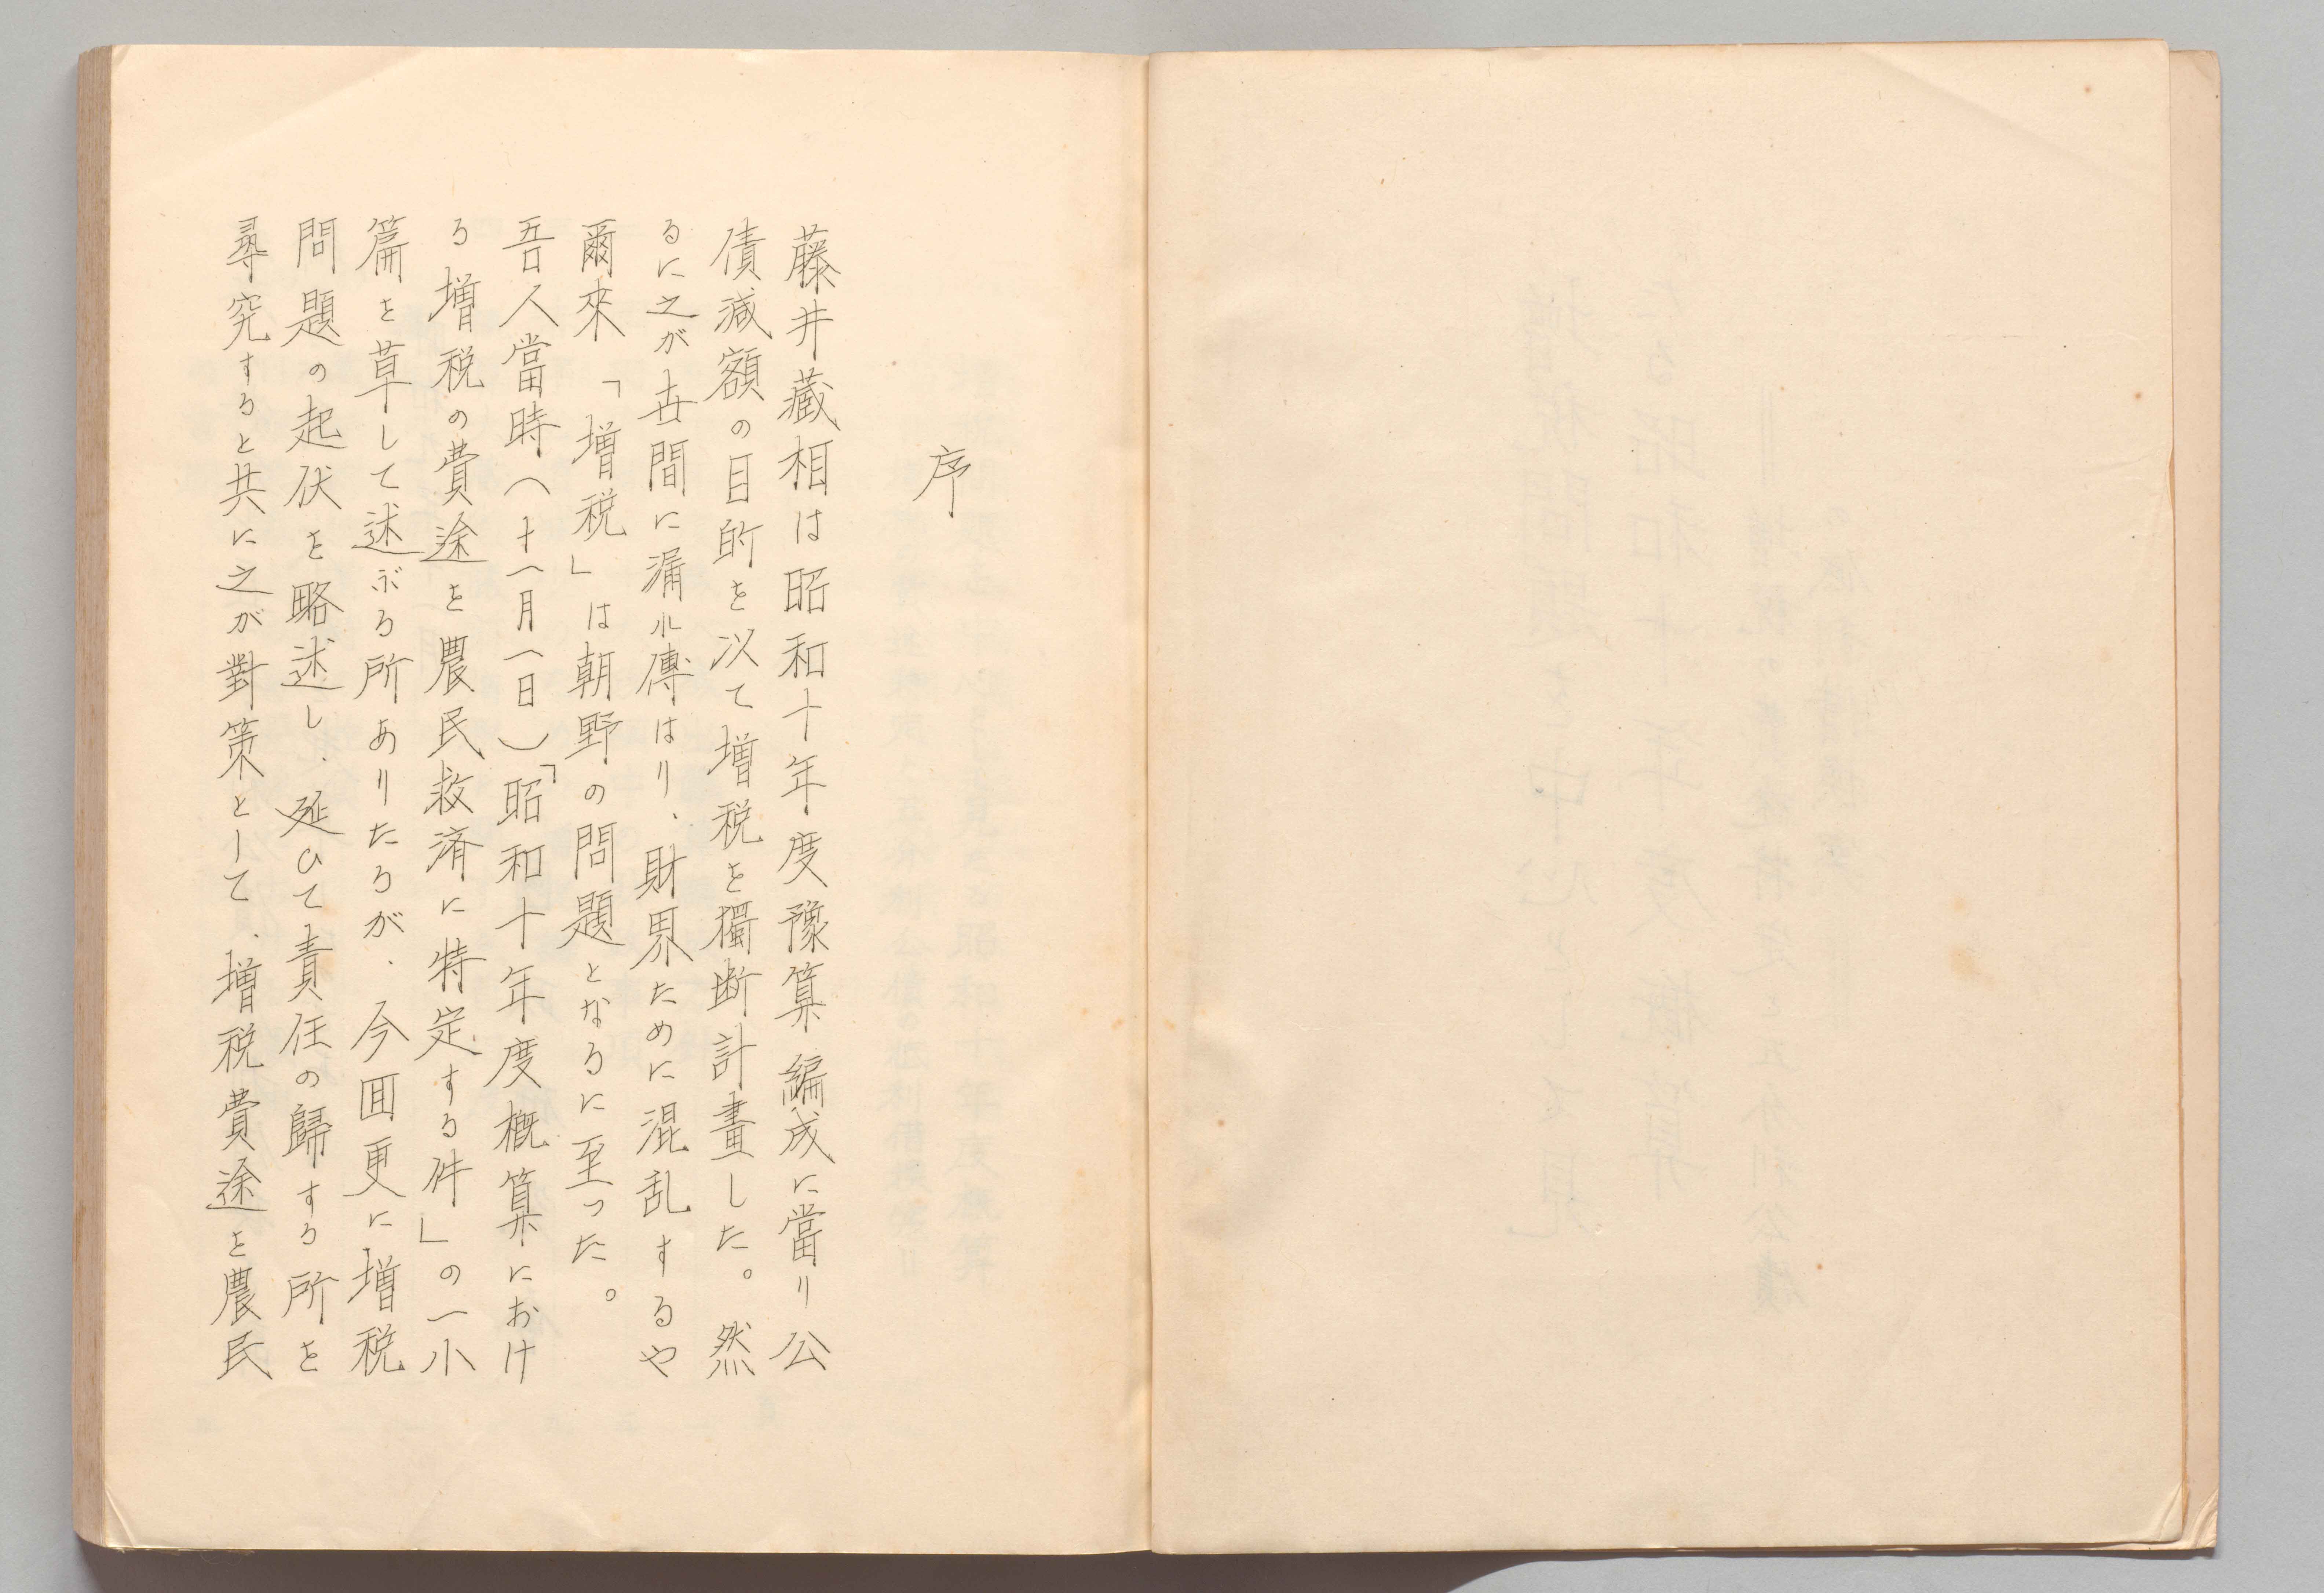 序
藤井藏相は昭和十年度豫算編成に當り公
債減額の目的を以て増税を獨断計畫した。然
るに之が世間に漏れ傳はり、財界ために混乱するや
爾來「増税」は朝野の問題となるに至った。
吾人當時(十一月一日)「昭和十年度概算におけ
る増税の費途を農民救済に特定する件」の一小
篇を草して述ぶる所ありたるが、今囬更に増税
問題の起伏を略述し、延ひて責任の歸する所を
尋究すると共に之が對策として、増税費途を農民